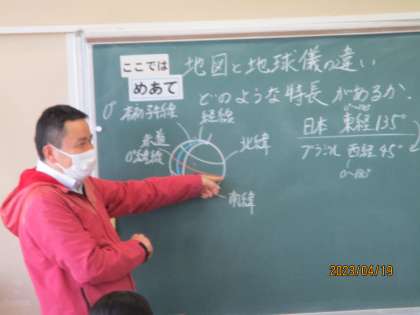 ここでは
めあて
地図と地球儀の違い
どのような特長があるか.
0° 本初子線
経線
赤道
0°緯線
北緯
南緯
0~180
日本 東経135°
ブラジル 西経45°
0~180
2023/04/19